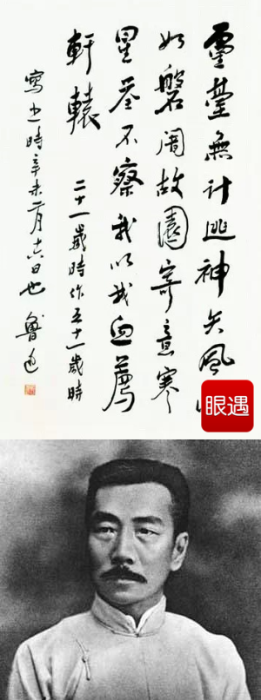 靈臺無計逃神矢風雨
如磐闇故園寄意寒
星荃不察我以我血薦
軒轅
二十一歲時作五十一歲時
寫之時辛未二月十六日也 魯迅
眼遇